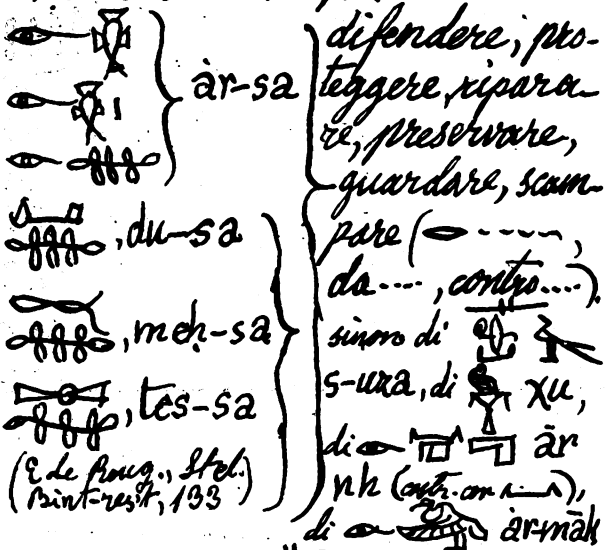 àr-sa
, du-sa
, meḥ-sa
, tes-sa
(E de Roug., Stel.
Bint-rest, 133)
difendere; pro-
teggere, ripara-
re, preservare,
guardare, scam-
pare ( ----- ,
da ...., contro ....).
sinono di
s-uza, di χu,
di ār
nh (
di àr-māk